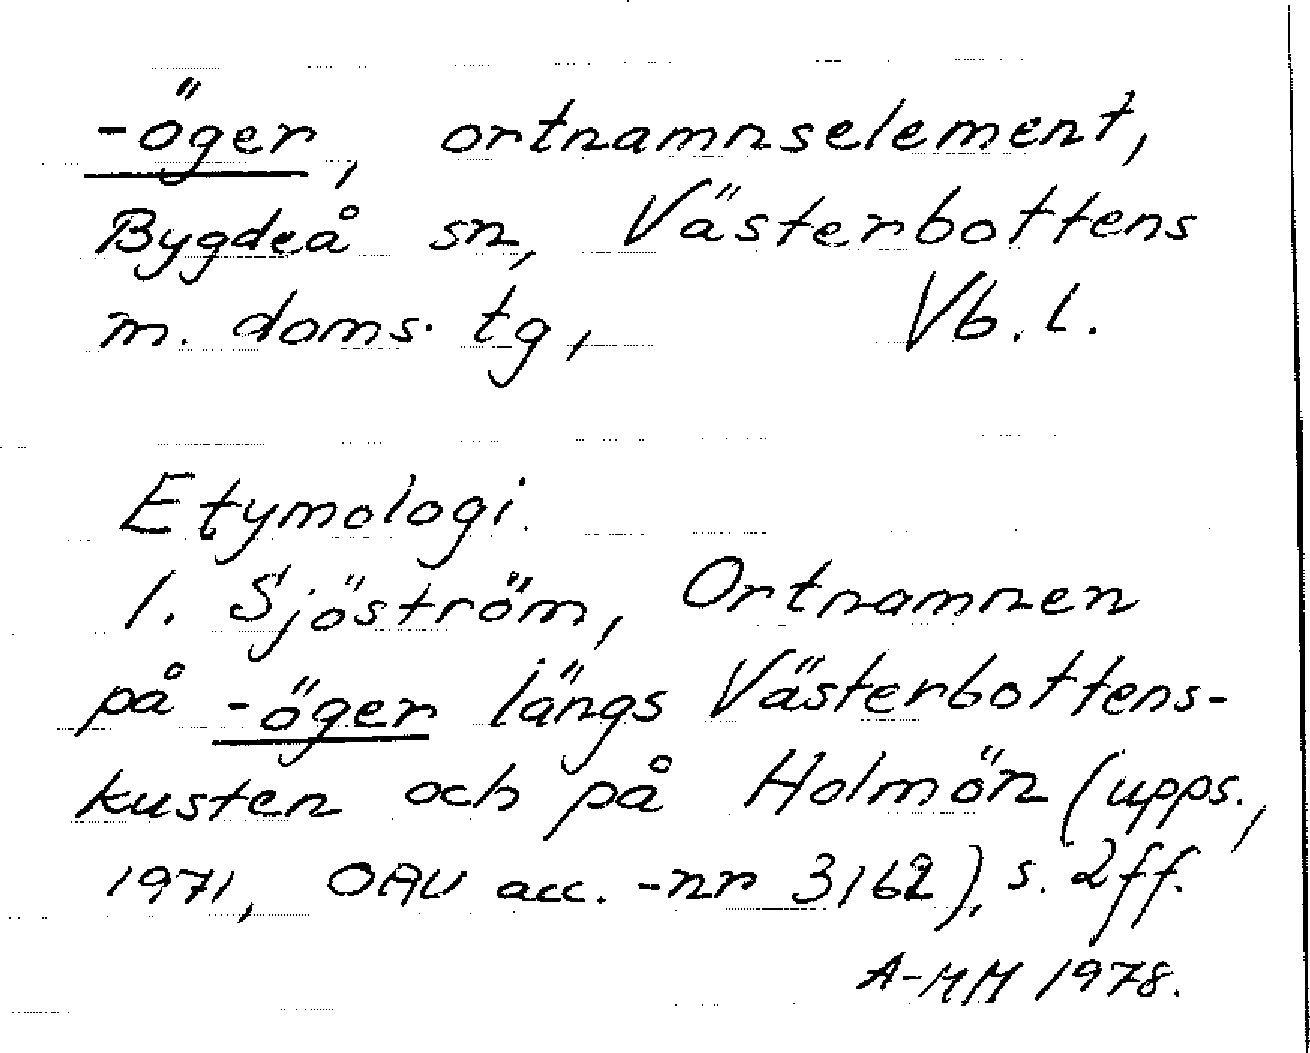 -öger, ortnamnselement,
Bygdeå sn, Västerbottens
m. doms. tg, Vb. l.
Etymologi.
1. Sjöström, Ortnamnen
på -öger längs Västerbottens-
kusten och på Holmön (upps.,
1971, OAU acc.-nr 3162), s. 2ff.
A-MM 1978.